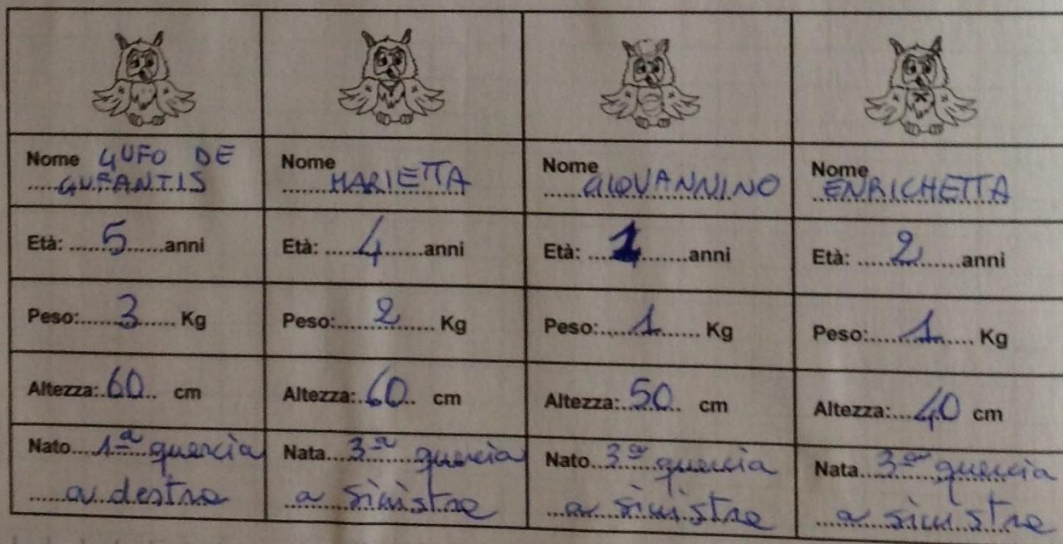 Nome GUFO DE
GUFANTIS
Nome
MARIETTA
Nome
GIOVANNINO
Nome
ENRICHETTA
Età: 5 anni
Età: 4 anni
Età: 1 anni
Età: 2 anni
Peso: 3 Kg
Peso: 2 Kg
Peso: 1 Kg
Peso: 1 Kg
Altezza: 60 cm
Altezza: 60 cm
Altezza: 50 cm
Altezza: 40 cm
Nato 1ª quercia
a destra
Nata 3ª quercia
a sinistra
Nato 3ª quercia
a sinistra
Nata 3ª quercia
a sinistra